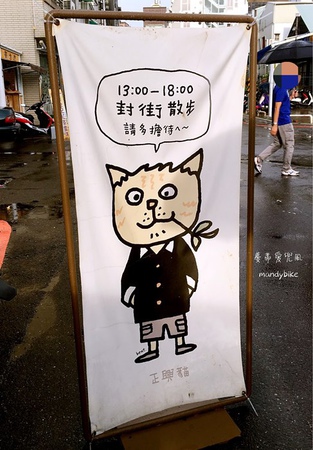 13:00－18:00
封街散步
請多擔待^~
正興貓
慶菲愛兜風
mandybike